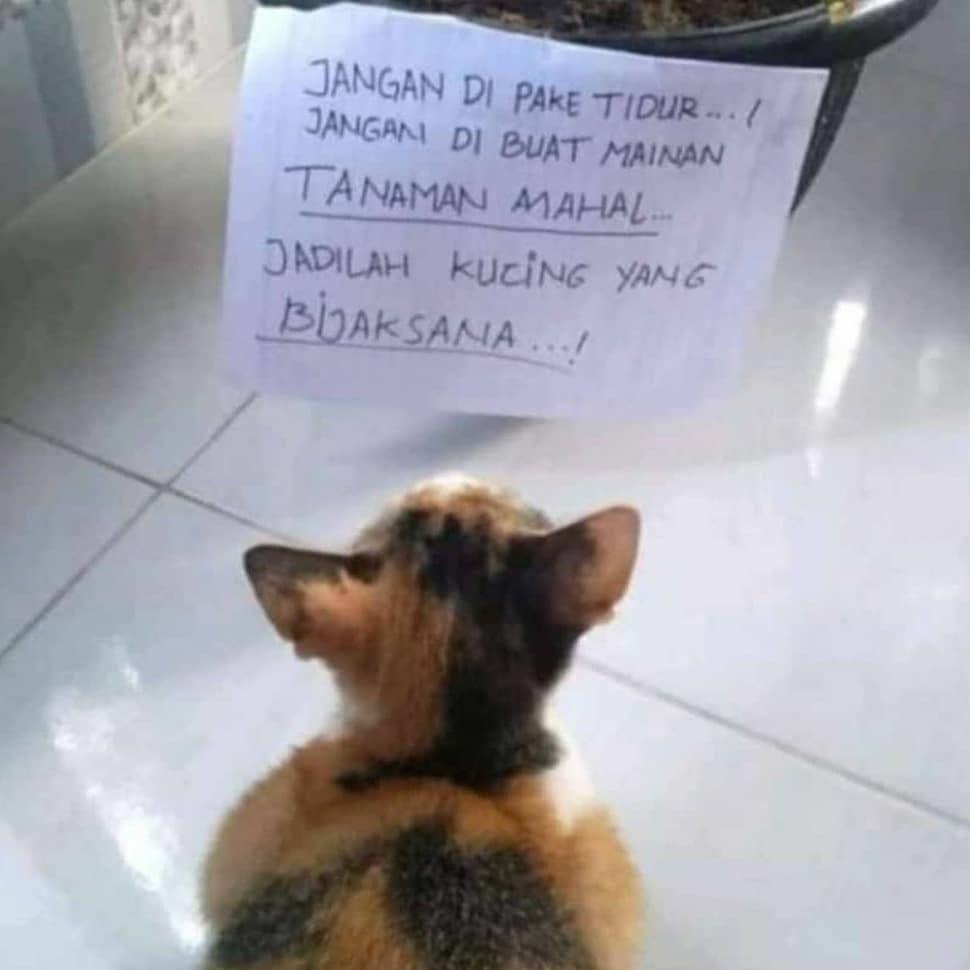 JANGAN DI PAKE TIDUR...!
JANGAN DI BUAT MAINAN
TANAMAN MAHAL...
JADILAH KUCING YANG
BIJAKSANA...!